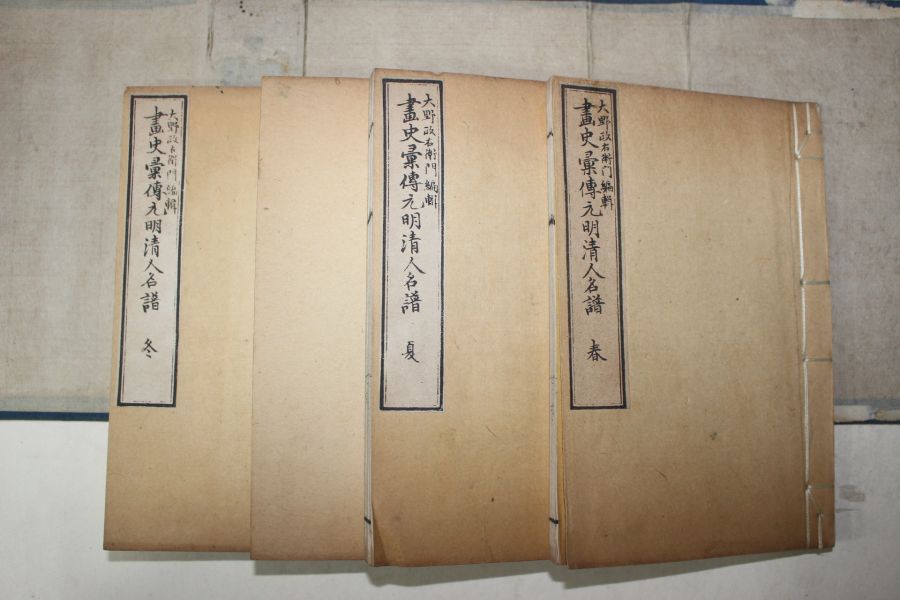 大野政右衛门編輯
畫史彙傳元明清人名譜
春
大野政右衛門編輯
畫史彙傳元明清人名譜
夏
大野政右衛門編輯
畫史彙傳元明清人名譜
冬